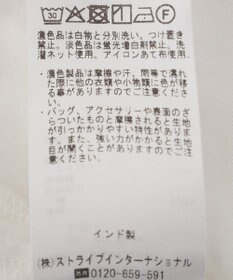 30 F
濃色品は白物と分別洗い。つけ置き
禁止。淡色品は蛍光増白剤禁止。洗
濯ネット使用、アイロンあて布使用。
・濃色製品は摩擦や汗、雨等で濡れ
た際に他の衣類や小物類に色が移
る事がありますのでご注意くださ
い。
・バッグ、アクセサリーや表面のざ
らついたものと摩擦されると生地
が引っかかりやすい特性がありま
す。また、強い力がかかると生地に
目開くことがありますのでご注意
ください。
インド製
(株)ストライプインターナショナル
0120-659-591